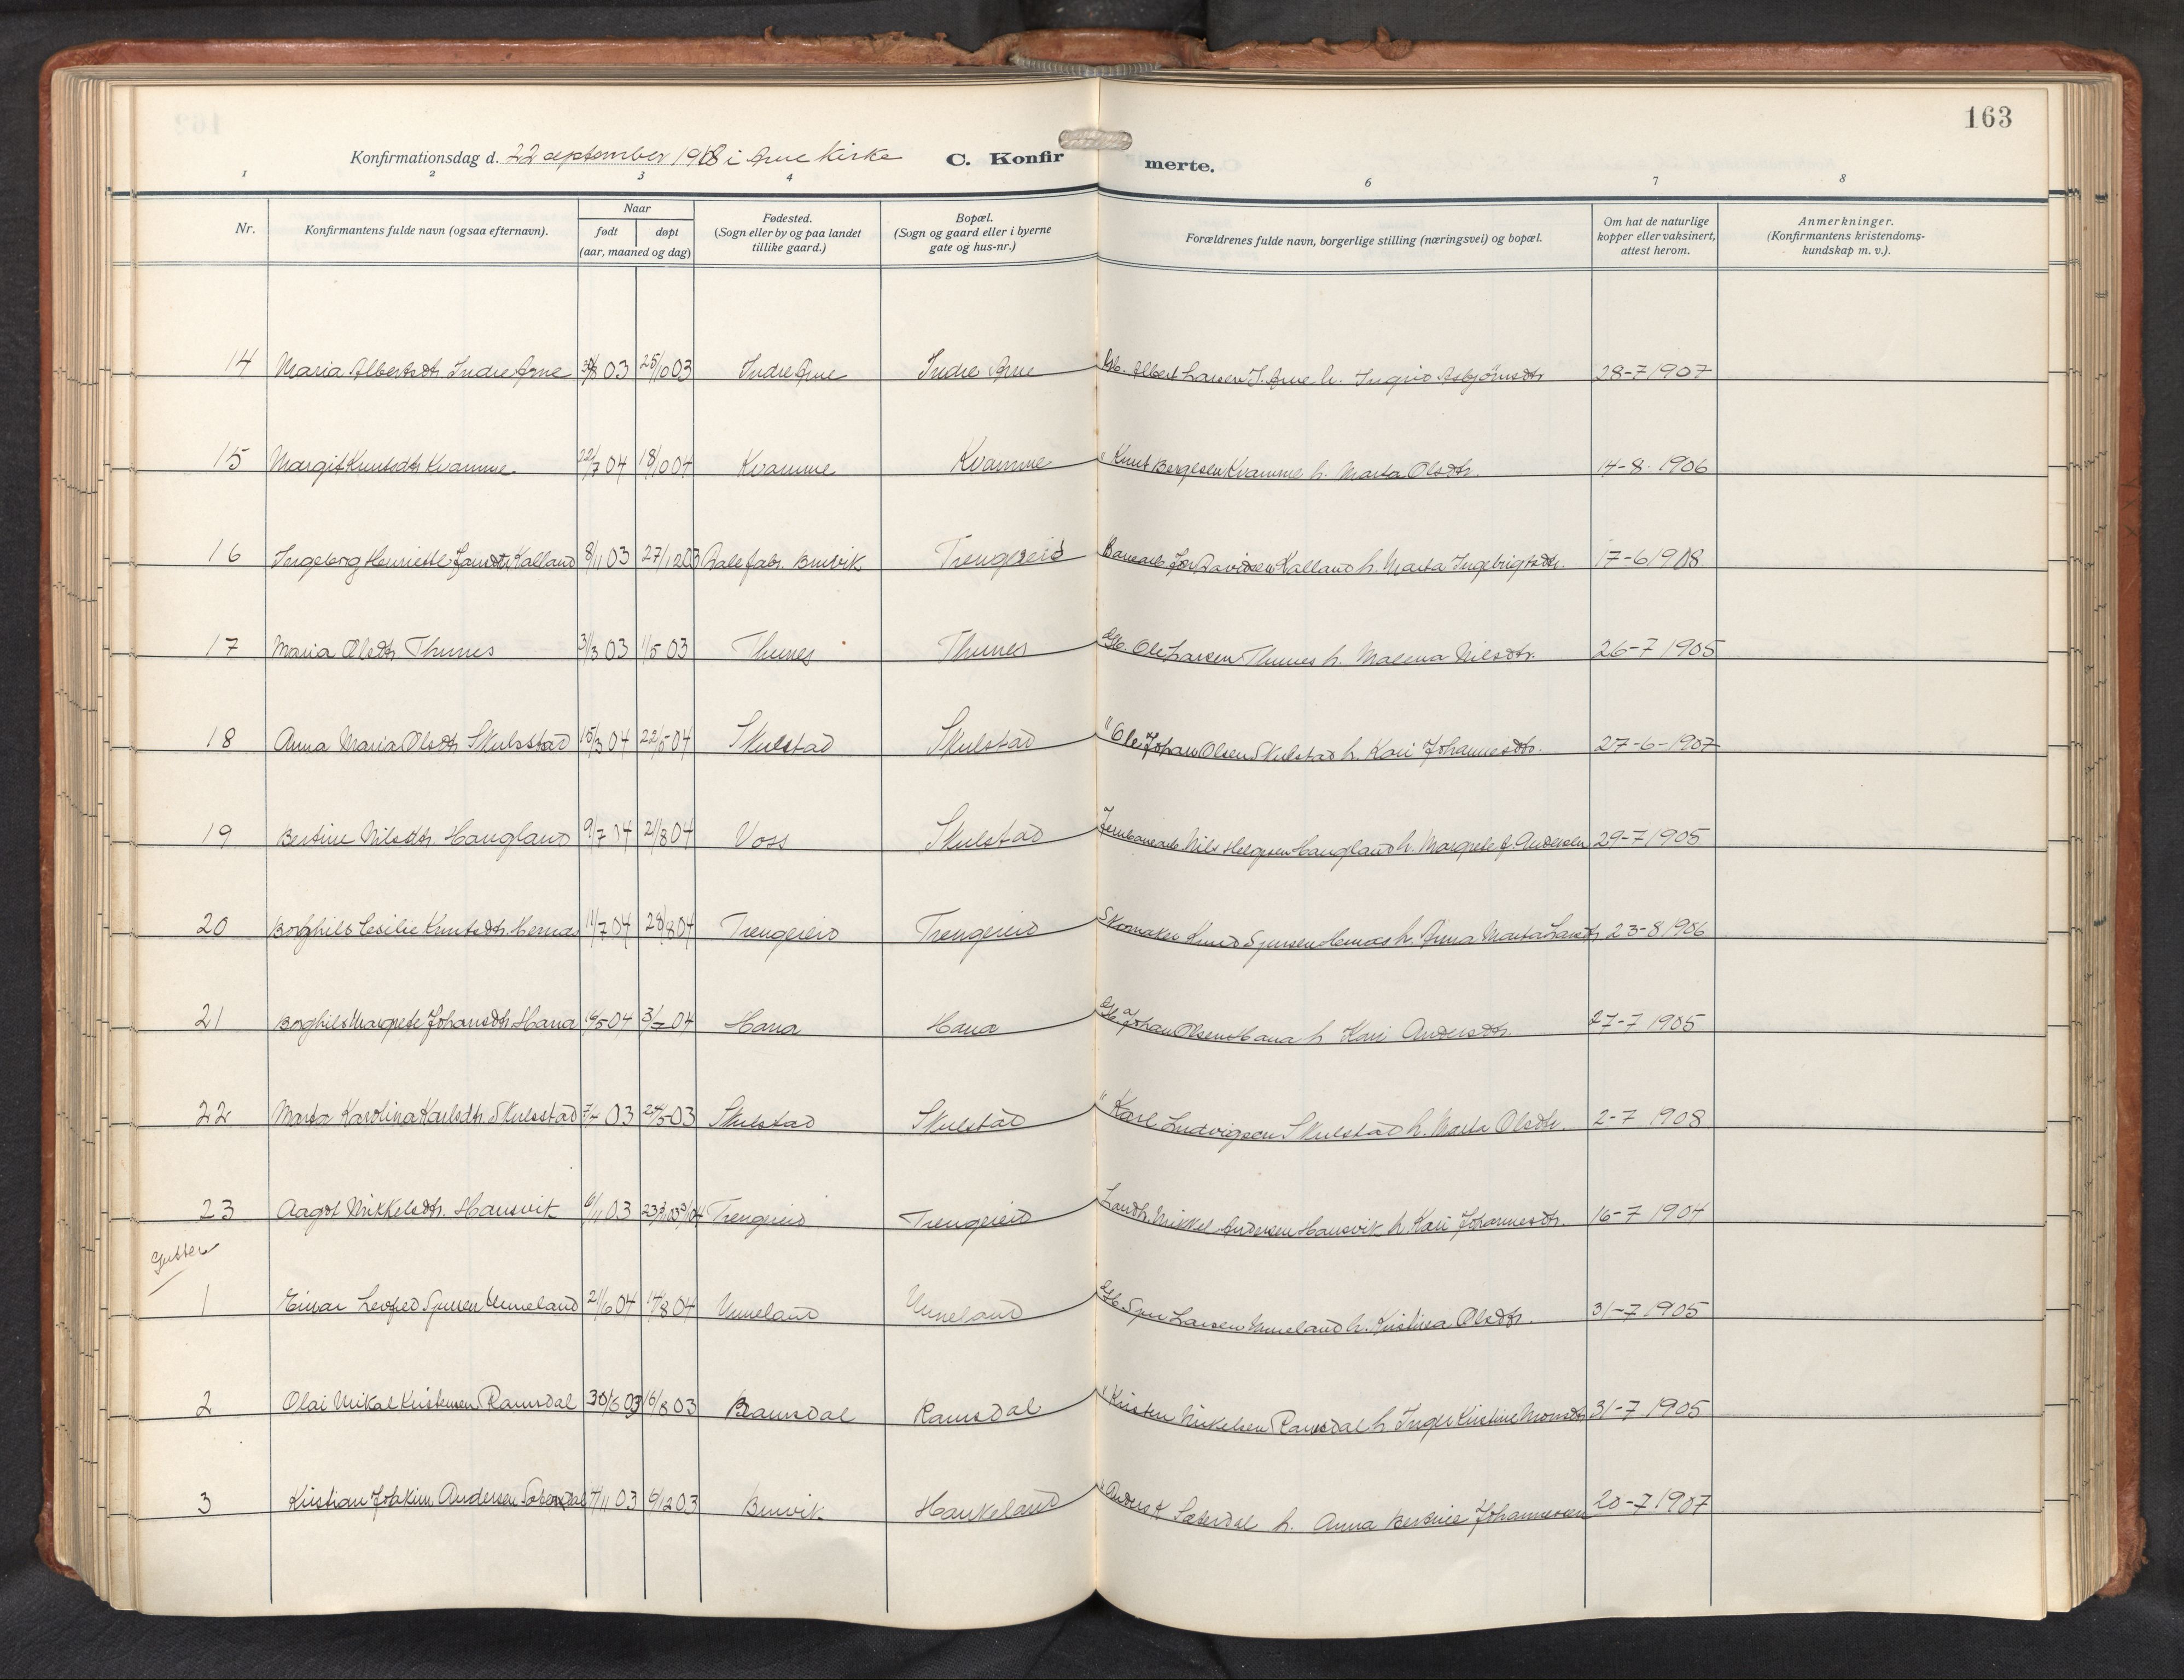 163
Konfirmationsdag d. 22 september 1918 i Arne Kirke C. Konfirmerte.
1 2 3 4 6 7 8
Nr. Konfirmantens fulde navn (ogsaa efternavn). Naar født døpt (aar, maaned og dag) Fødested. (Sogn eller by og paa landet tillike gaard.) Bopæl. (Sogn og gaard eller i byerne gate og hus-nr.) Forældrenes fulde navn, borgerlige stilling (næringsvei) og bopæl. Om hat de naturlige kopper eller vaksinert, attest herom. Anmerkninger. (Konfirmantens kristendoms-kundskap m. v.).
14 Maria Albertsdtr. Indre Arne 03 25/10 03 Indre Arne Indre Arne Gb. Albert Larsen I. Arne h. Ingrid Asbjørnsdtr 28-7 1907
15 Margit Knutsdtr Kvamme 22/7 04 18/10 04 Kvamme Kvamme " Knut Børgesen Kvamme h. Marta Olsdtr. 14-8-1906
16 Ingeborg Henriette Kalland 8/11 03 27/12 03 Dale fabr. Bruvik Trengereid Banearb. Davidsen Kalland h. Marta Ingebrigtsdtr. 17-6 1908
17 Maria Olsdtr Thunes 31/3 03 1/5 03 Thunes Thunes Gb. Ole Larsen Thunes h. Malena Nilsdtr. 26-7 1905
18 Anna Maria Olsdtr Skulstad 15/3 04 22/5 04 Skulstad Skulstad " Ole Johan Olsen Skulstad h. Kari Johannesdtr. 27-6-1907
19 Bertine Nilsdtr. Haugland 9/7 04 21/8 04 Voss Skulstad Jernbanearb. Nils Helgesen Haugland h. Margrete f. Andersen 29-7 1905
20 Borghild Cesilie Knutsdtr. Hernas 11/7 04 28/8 04 Trengereid Trengereid Skomaker Knud Sjursen Hernas h. Anna Marta Larsdtr 23-8 1906
21 Borghild Margrete Johansdtr. Hana 04 04 Hana Hana Gb. Johan Olsen Hana h Kari Andersdtr. 27-7 1905
22 Marta Karolina Karlsdtr. Skulstad 03 24/5 03 Skulstad Skulstad " Karl Ludvigsen Skulstad h. Marta Olsdtr. 2-7 1908
23 Aagot Mikkelsdtr. Hausvik 6/11 03 Trengereid Trengereid Landh. Mikkel Andersen Hausvik h. Kari Johannesdtr. 16-7 1904
Gutter
1 Einar Leofred Sjursen Unneland 21/6 04 14/8 04 Unneland Unneland Gb Sjur Larsen Unneland h. Kristina Olsdtr. 31-7 1905
2 Olai Mikal Kristensen Ramsdal 30/6 03 16/8 03 Ramsdal Ramsdal " Kristen Mikelsen Ramsdal h Inger Kristine Monsdtr 31-7 1905
3 Kristian Joakim Andersen Sæterdal 7/11 03 6/12 03 Bruvik Haukeland " Anders K Sæterdal h. Anna Bertine Johannesen 20-7 1907